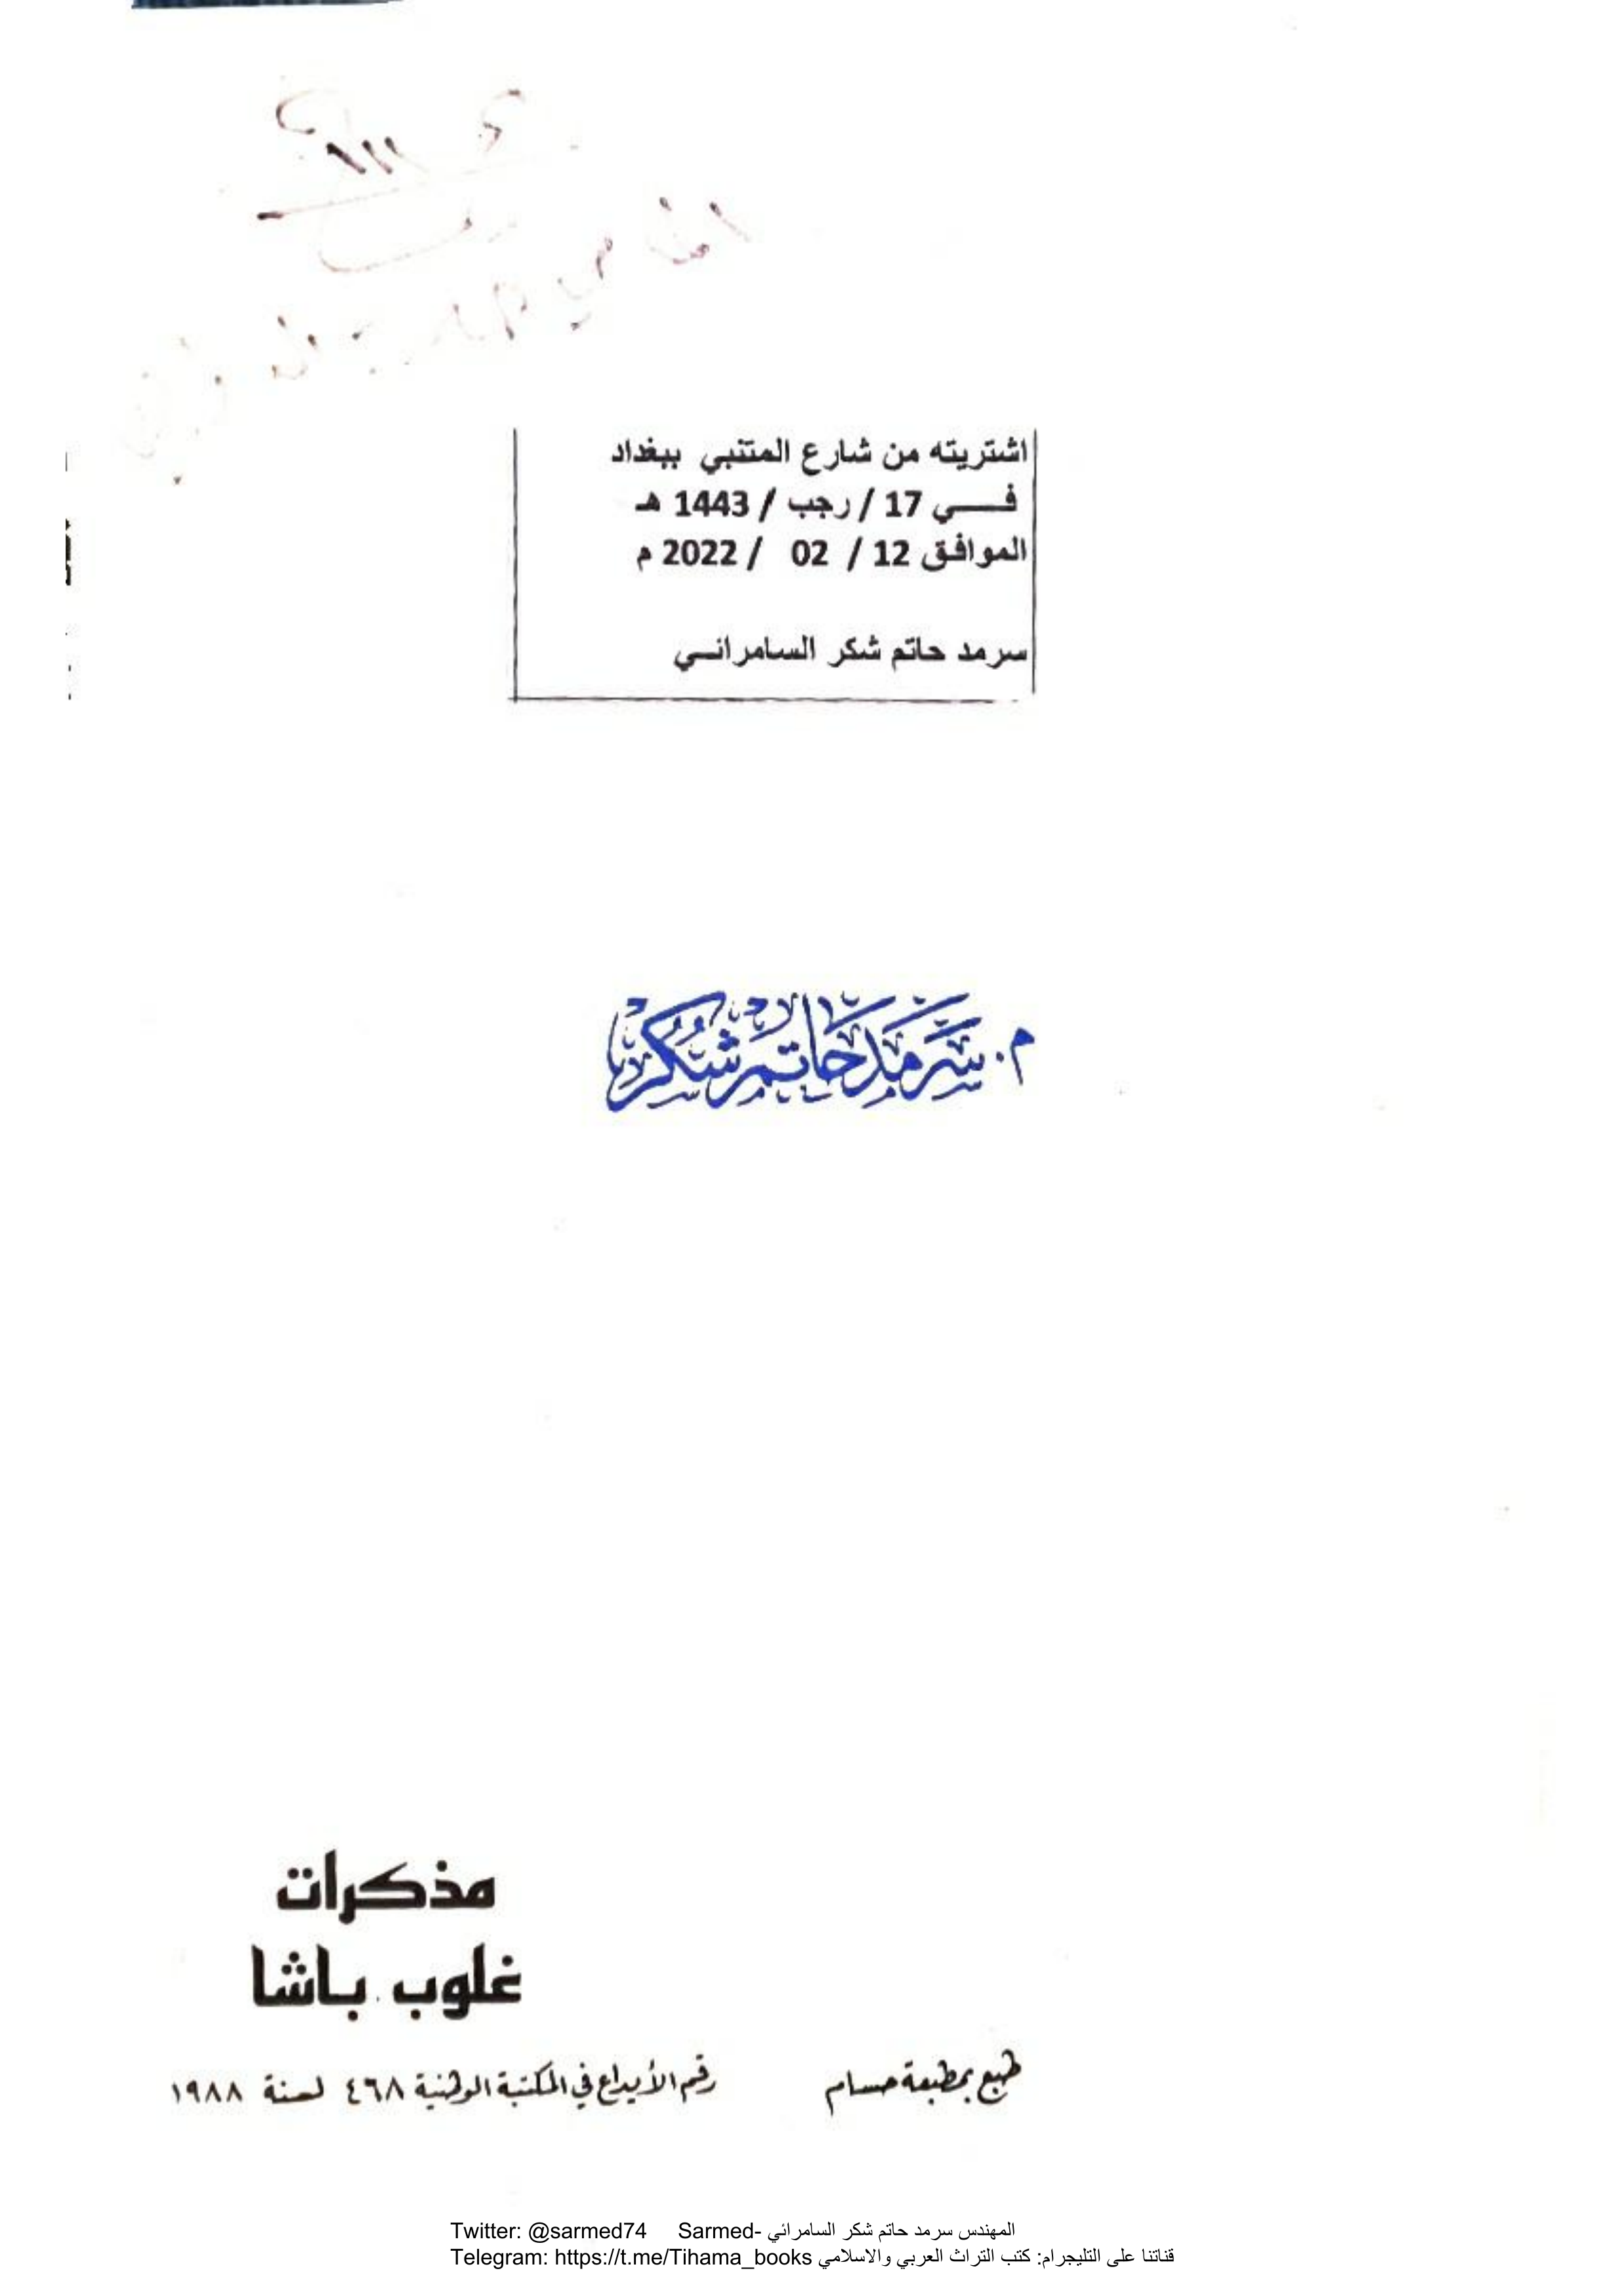 اشتريته من شارع المتنبي ببغداد
فـــي 17 / رجب / 1443 هـ
الموافق 12 / 02 / 2022 م
سرمد حاتم شكر السامرائـي
م. سرمد حاتم شكر
مذكرات
غلوب باشا
طبع بمطبعة حسام رقم الأيداع في المكتبة الوطنية ٤٦٨ لسنة ١٩٨٨
Twitter: @sarmed74 Sarmed- المهندس سرمد حاتم شكر السامرائي
Telegram: https://t.me/Tihama_books قناتنا على التليجرام: كتب التراث العربي والاسلامي